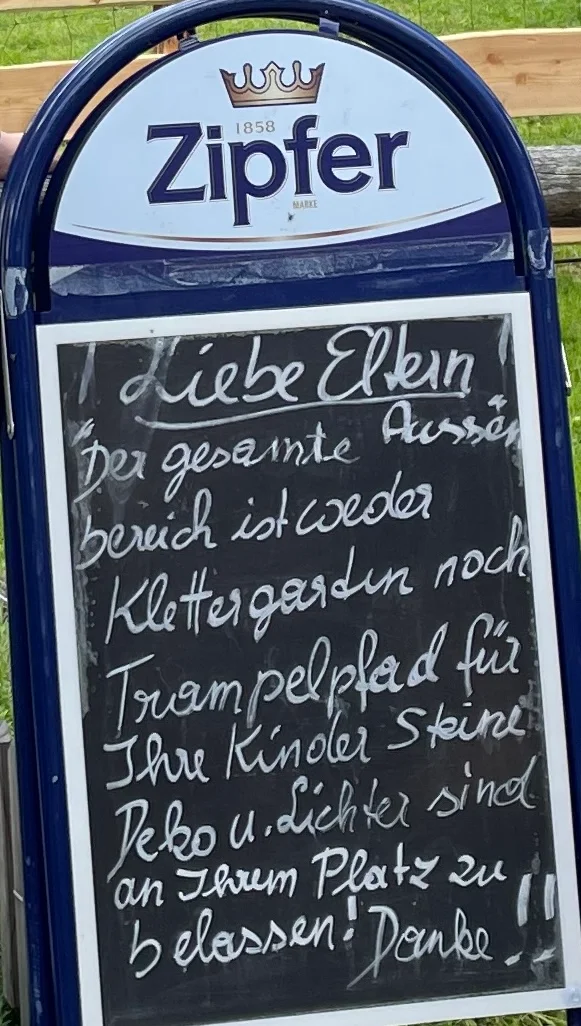 1858
Zipfer
MARKE
! Liebe Eltern !
"Der gesamte Aussen
bereich ist weder
Klettergarten noch
Trampelpfad für
Ihre Kinder Steine
Deko u. Lichter sind
an Ihrem Platz zu
belassen! Danke!!